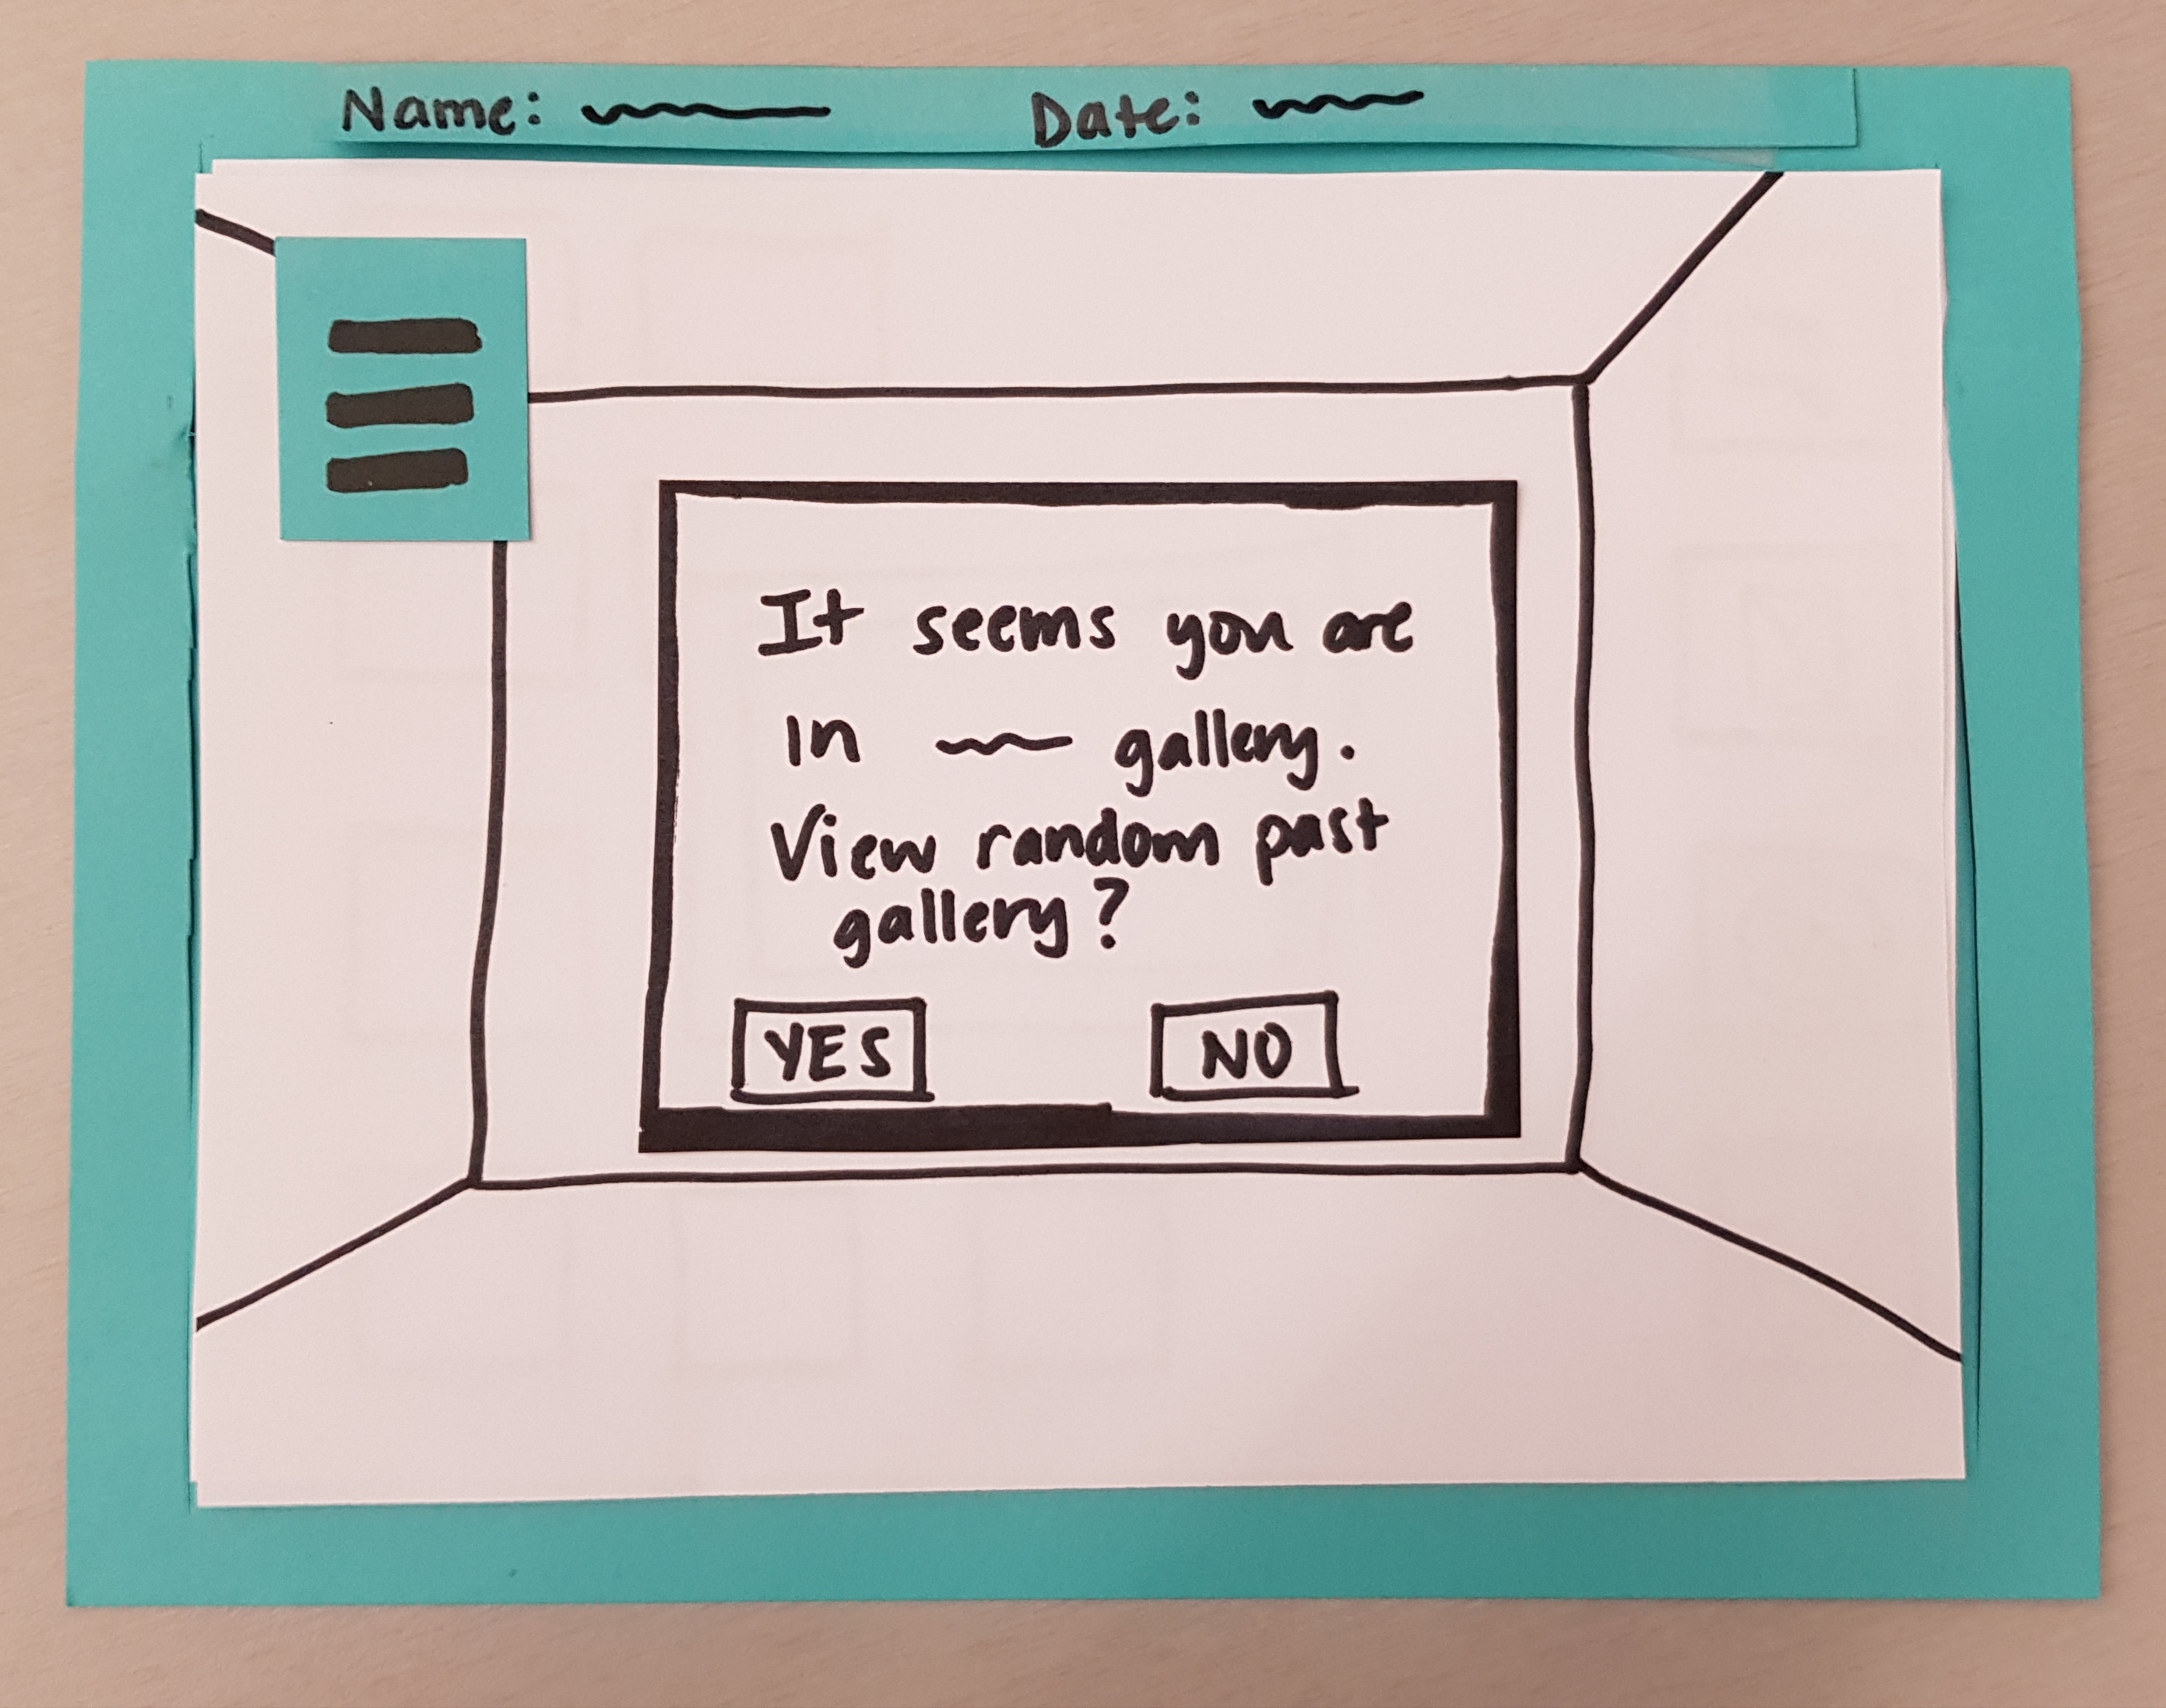 Name: Date:
It seems you are
in gallery.
View random past
gallery?
YES NO